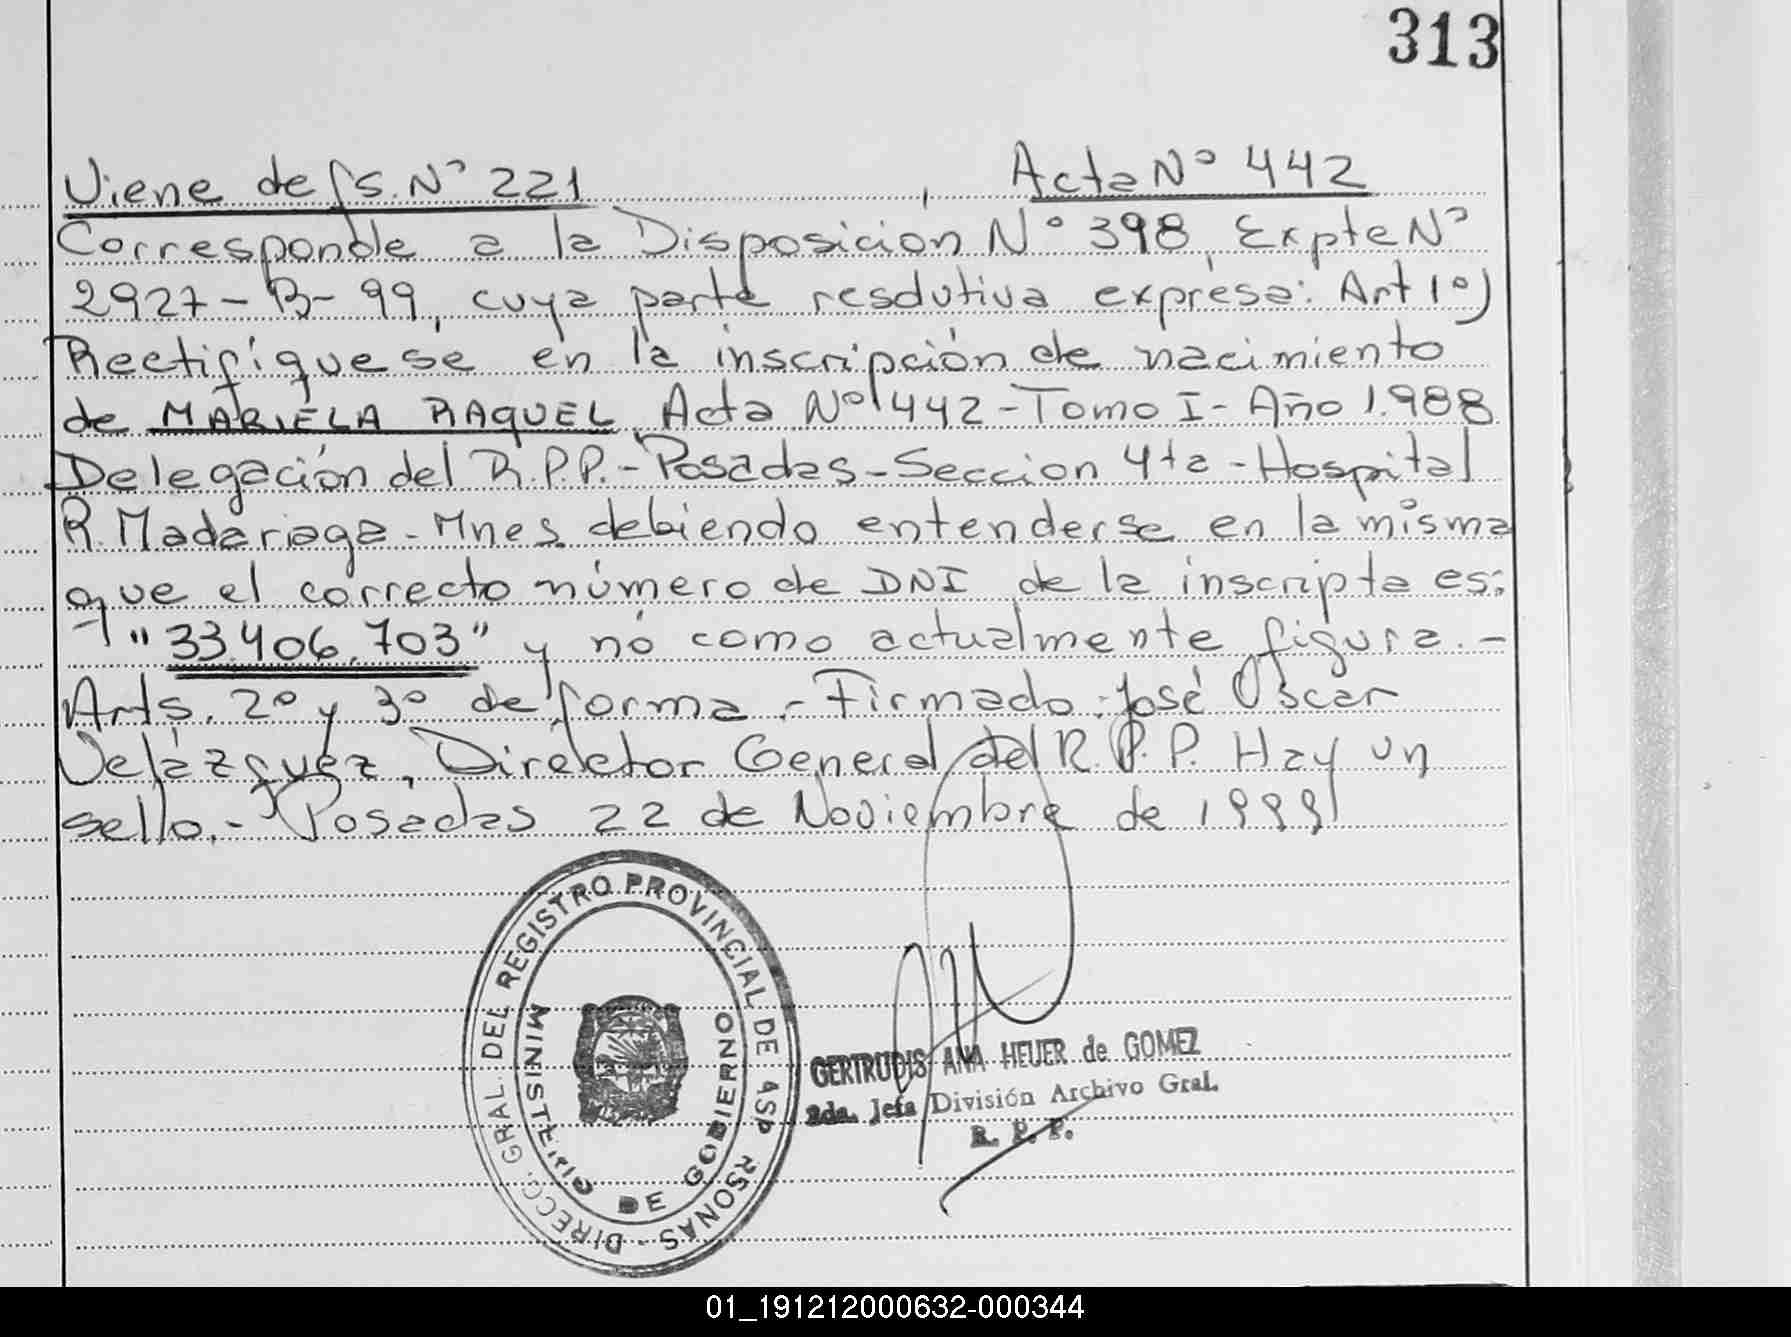 313
Viene de fs. N° 221, Acta N° 442
Corresponde a la Disposicion N° 398, Expte N°
2927-B-99, cuya parte resolutiva expresa: Art 1°)
Rectifíquese en la inscripción de nacimiento
de MARIELA RAQUEL, Acta N° 442-Tomo I-Año 1.988
Delegación del R.P.P.-Posadas-Seccion 4ta-Hospital
R. Madariaga-Mnes. debiendo entenderse en la misma
que el correcto número de DNI de la inscripta es:
"33.406.703" y no como actualmente figura.-
Arts. 2° y 3° de forma.- Firmado: José Oscar
Velázquez, Director General del R.P.P. Hay un
sello.- Posadas 22 de Noviembre de 1999
DIRECC. GRAL. DEL REGISTRO PROVINCIAL DE RSONAS -
MINISTERIO DE GOBIERNO
GERTRUDIS ANA HEUER de GOMEZ
2da. Jefa División Archivo Gral.
R. P. P.
01_191212000632-000344